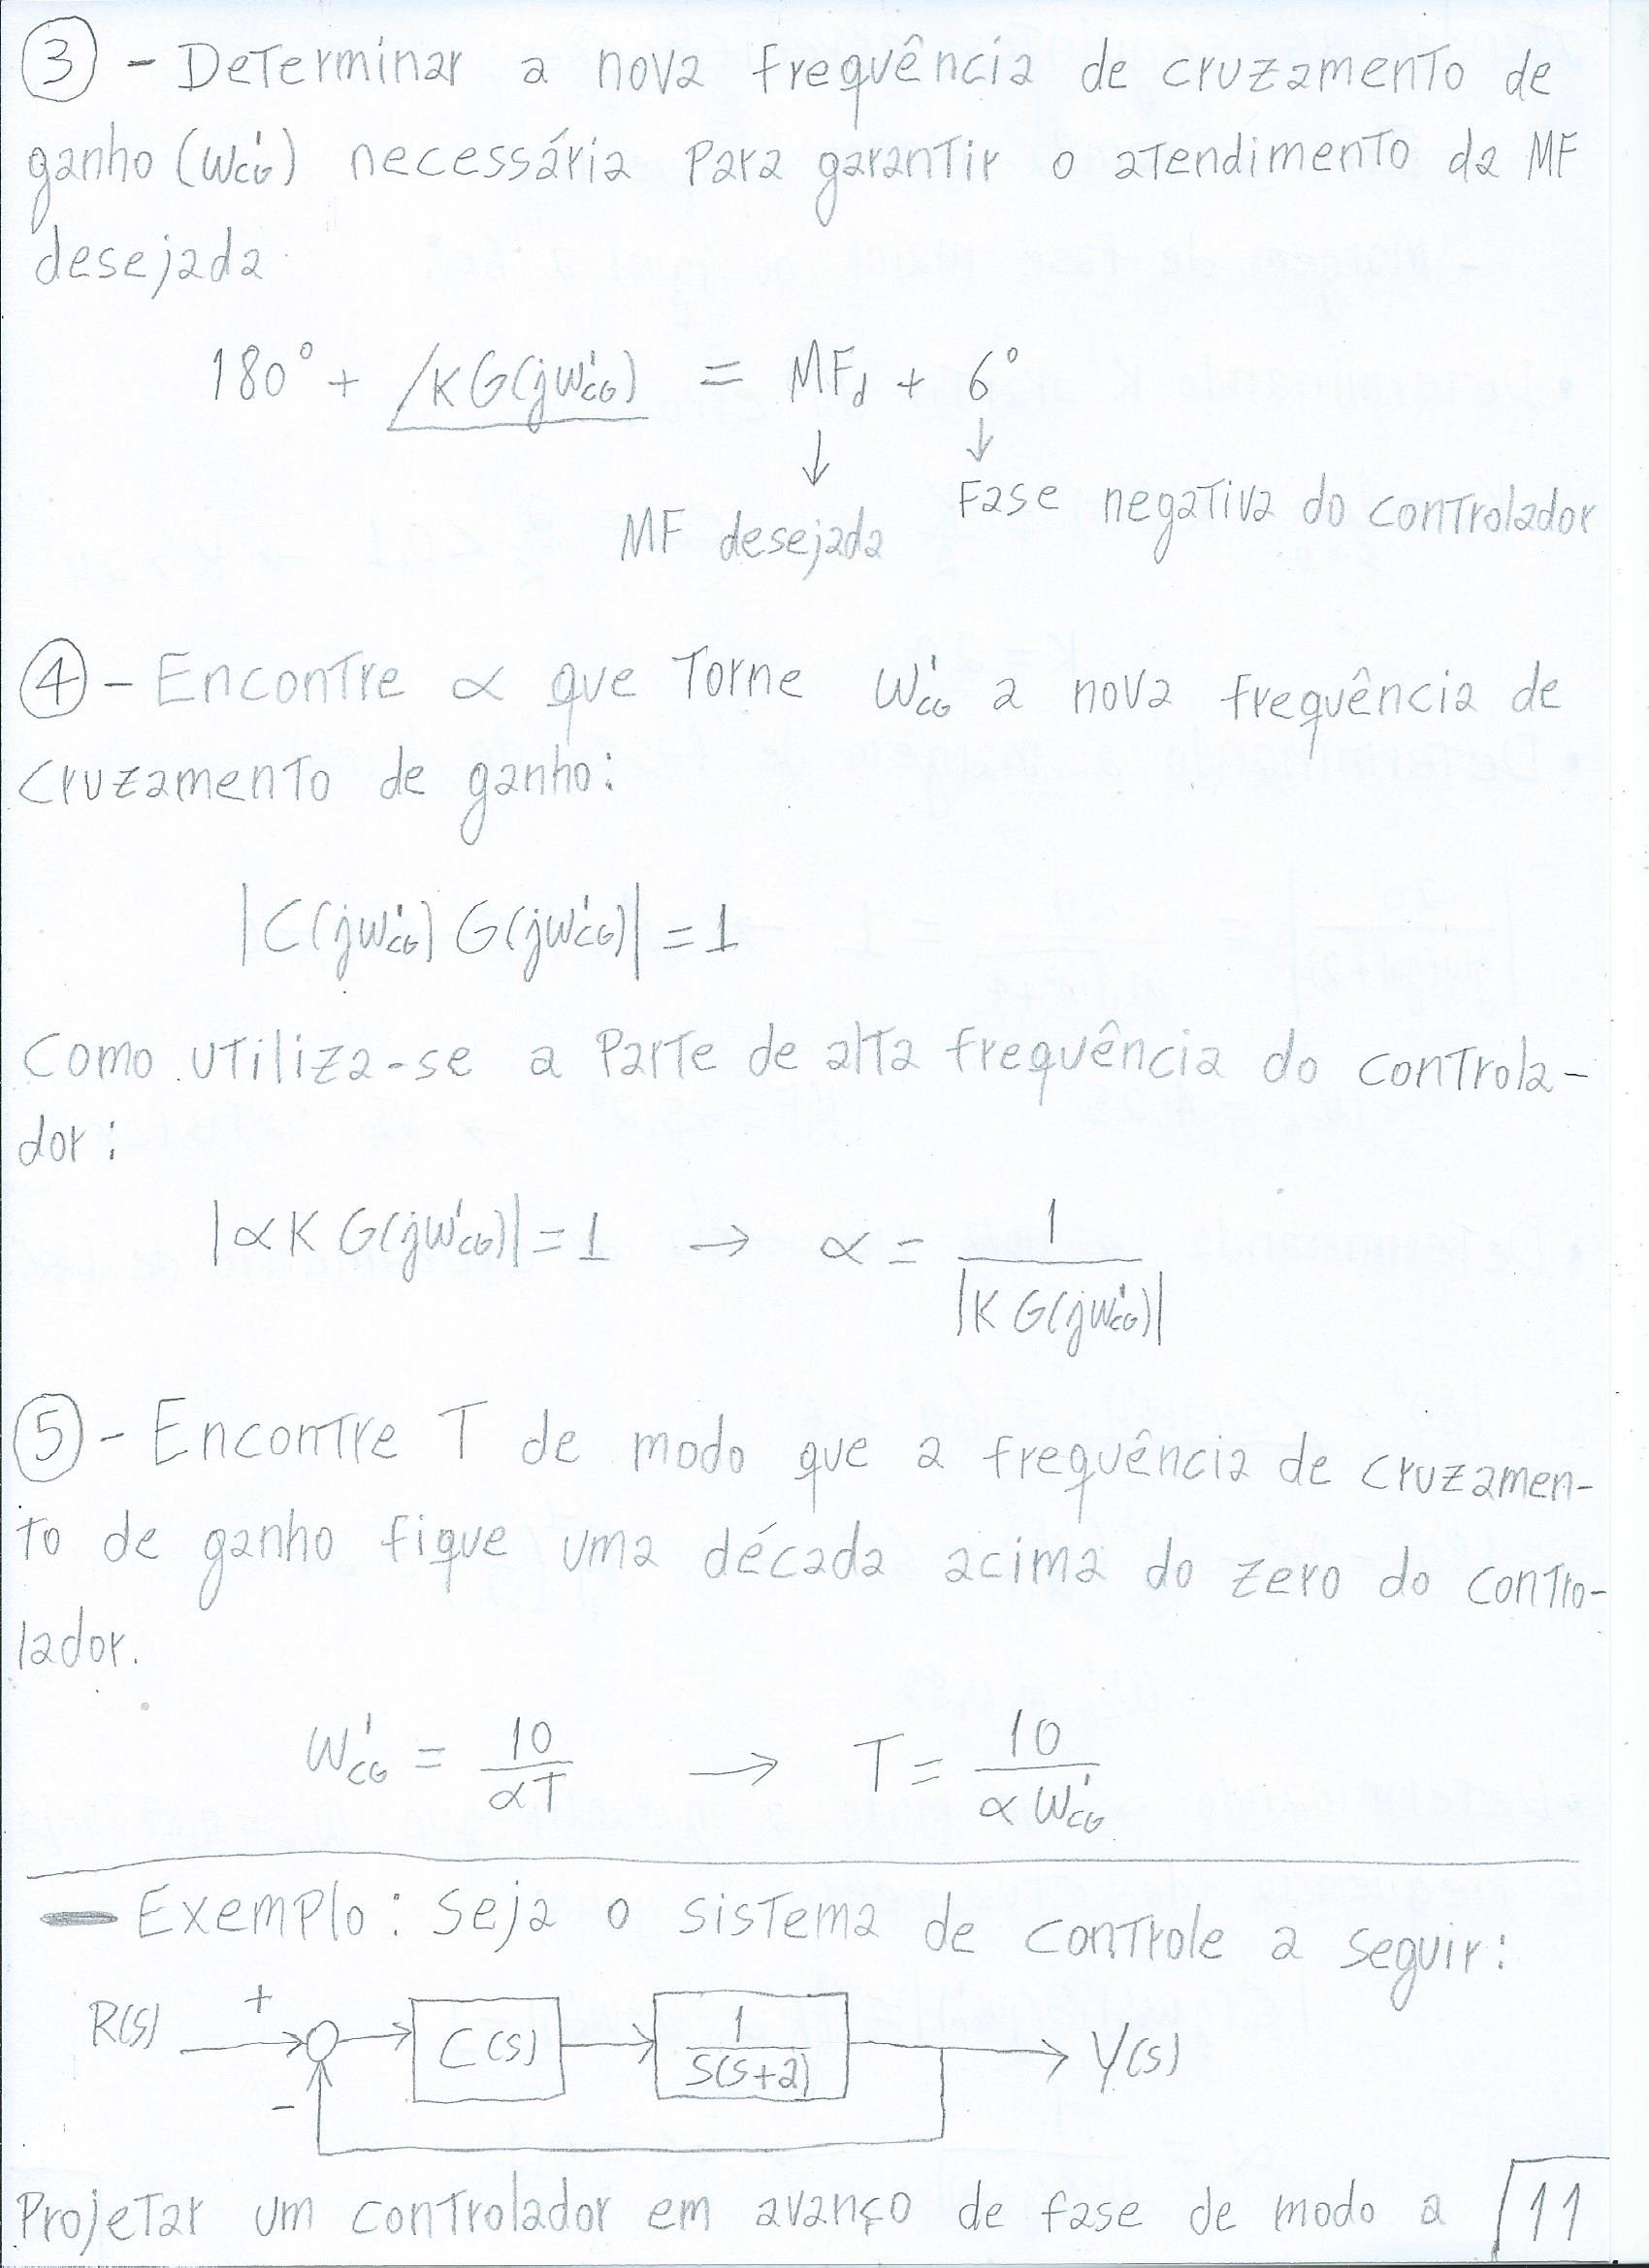 ③ - Determinar a nova frequência de cruzamento de
ganho (WcG') necessária para garantir o atendimento da MF
desejada
180° + ∠KG(jWcG') = MFd + 6°
↓ ↓
MF desejada Fase negativa do controlador
④ - Encontre α que torne WcG' a nova frequência de
cruzamento de ganho:
|C(jWcG') G(jWcG')| = 1
Como utiliza-se a parte de alta frequência do controla-
dor:
|αK G(jWcG')| = 1 → α = 1 / |K G(jWcG')|
⑤ - Encontre T de modo que a frequência de cruzamen-
to de ganho fique uma década acima do zero do contro-
lador.
WcG' = 10/αT → T = 10/αWcG'
- Exemplo: Seja o sistema de controle a seguir:
R(s) + - C(s) 1/S(S+2) Y(s)
Projetar um controlador em avanço de fase de modo a 11